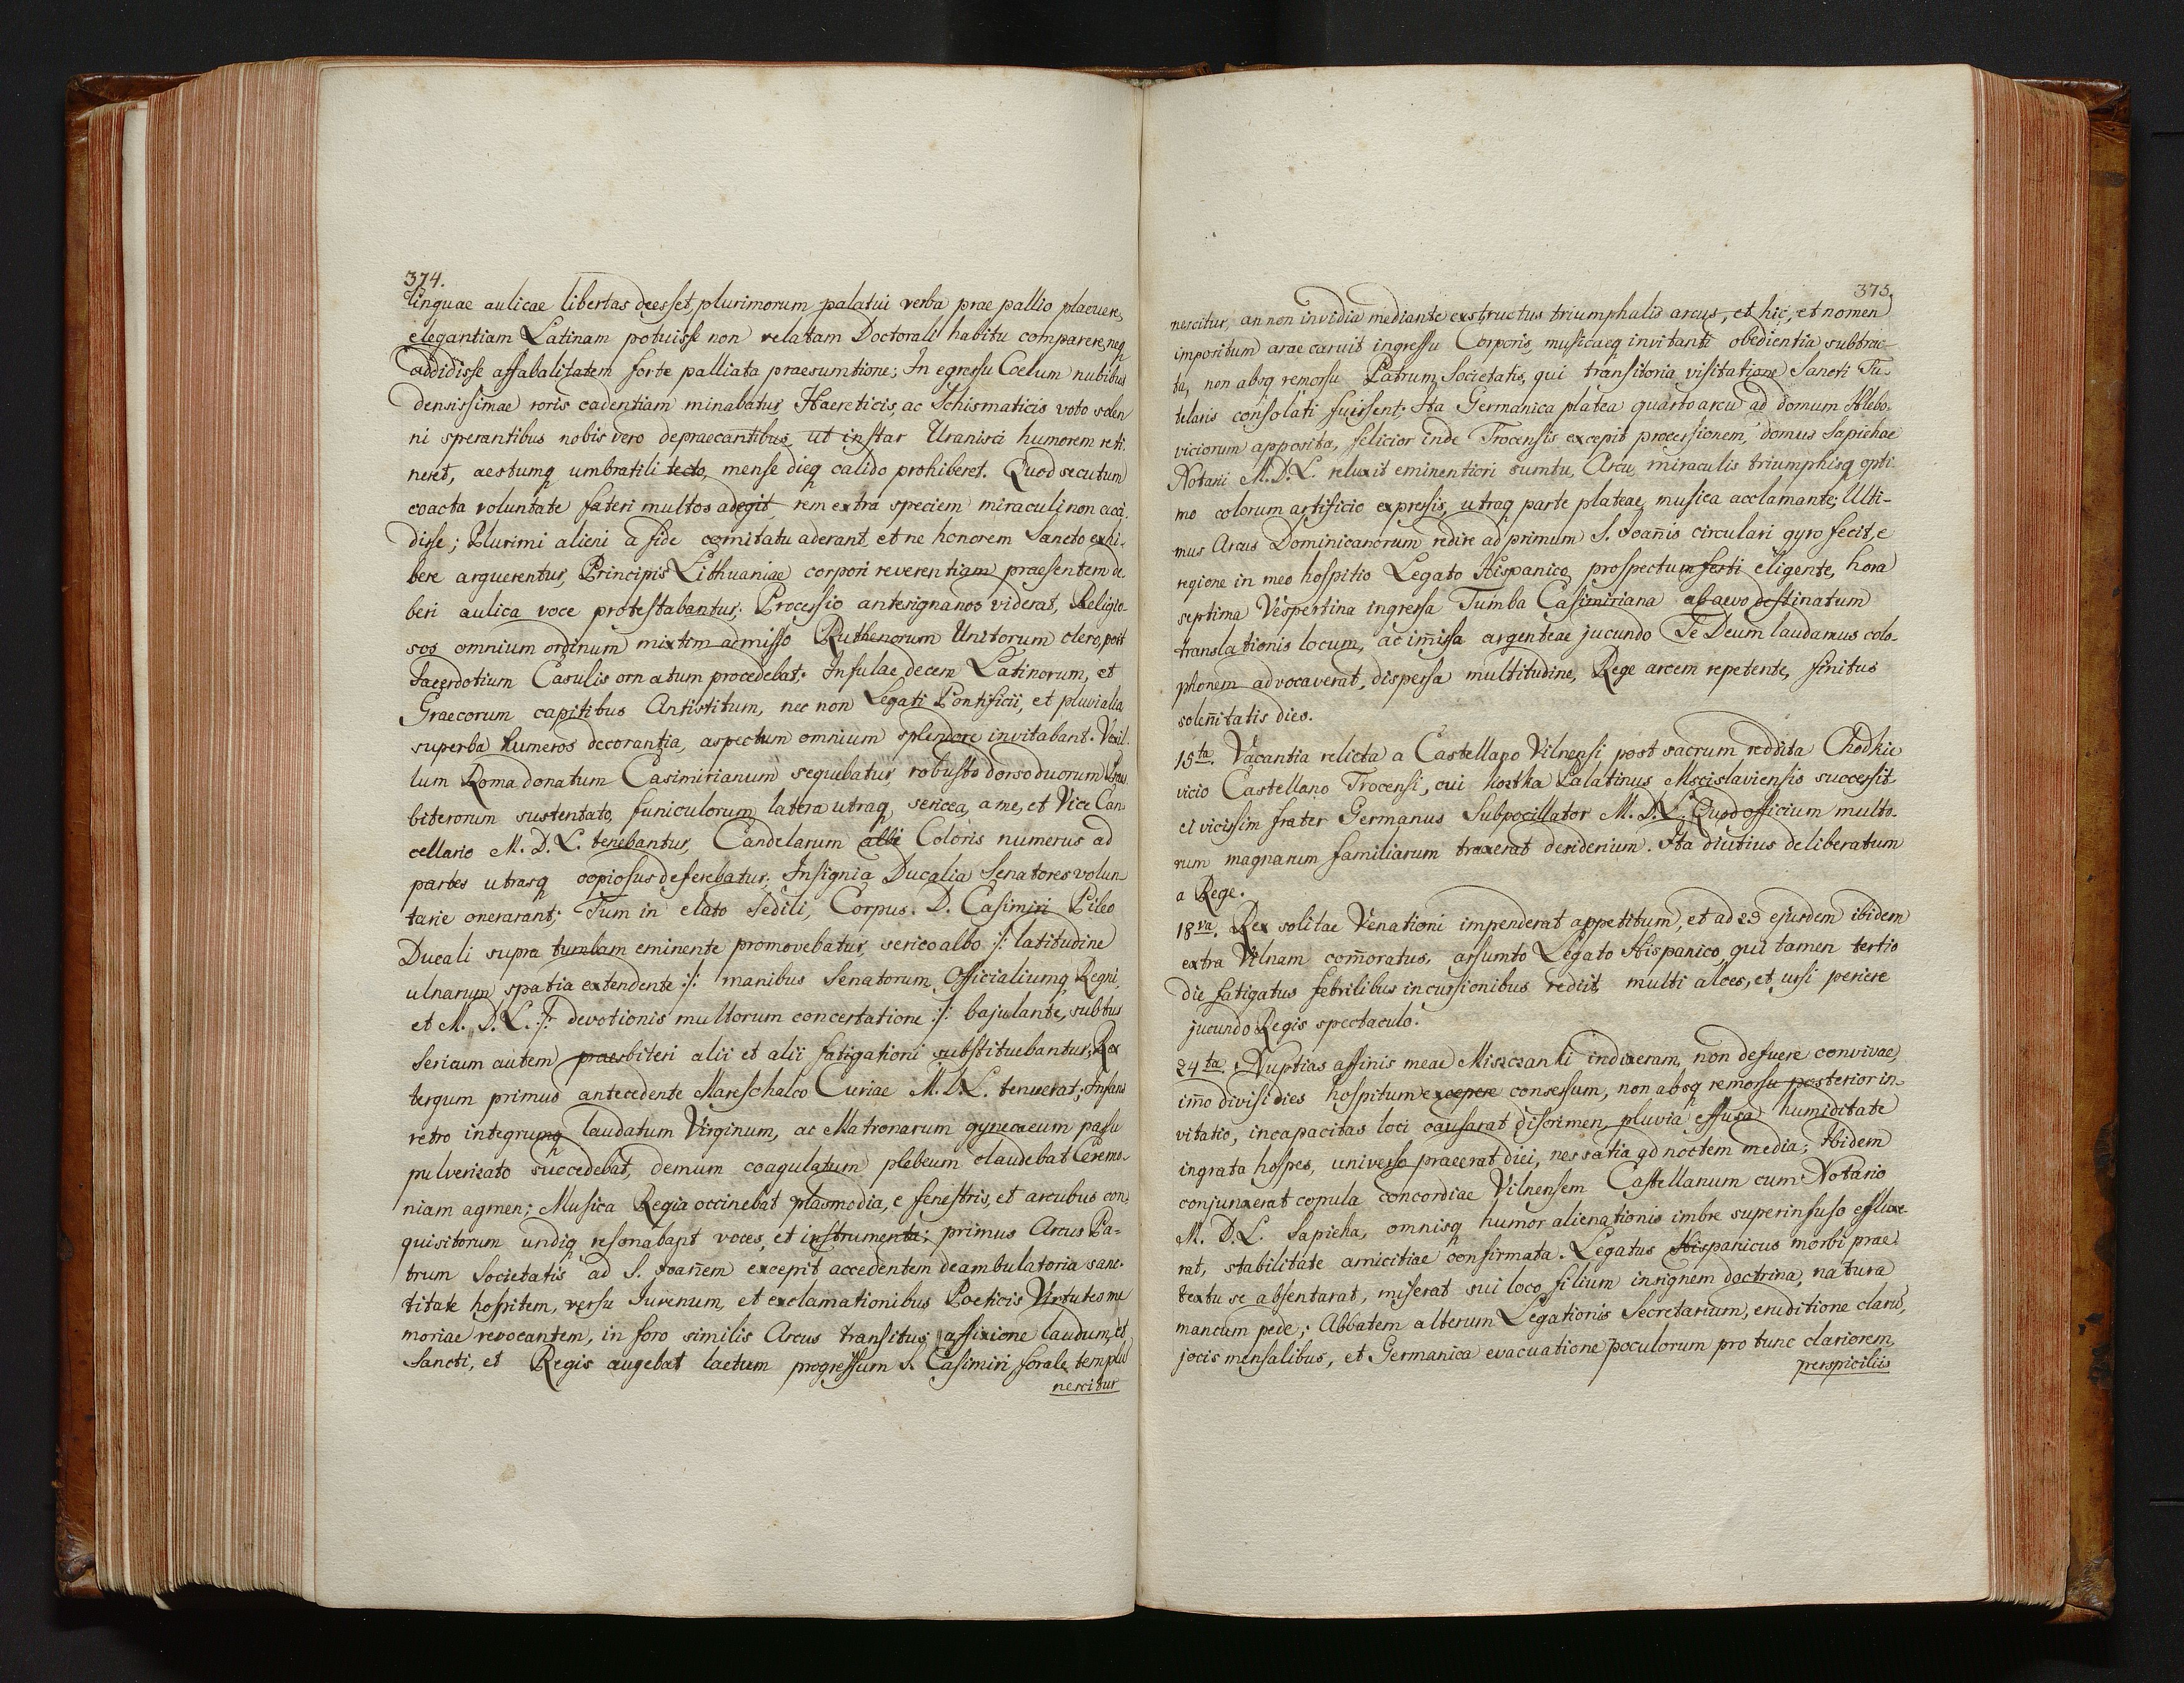 374.
linguae aulicae libertas deesset, plurimorum palatui verba prae pallio placuere,
elegantiam Latinam potuisse non velatam Doctorali habitu comparere, neq
addidisse affabalitatem forte palliata praesumtione; In egressu Coelum nubibus
densissimae roris cadentiam minabatur, Haereticis, ac Schismaticis voto solen
ni sperantibus nobis vero depraecantibus, ut instar Uranisci humorem reti
neret, aestumq umbratili tecto, mense dieq calido prohiberet. Quod secutum
coacta voluntate fateri multos adegit, rem extra speciem miraculi non acci
disse; Plurimi alieni a fide comitatu aderant, et ne honorem Sancto exhi-
bere arguerentur, Principis Lithuaniae corpori reverentiam praesentem de
beri aulica voce protestabantur; Processio antesignanos viderat, Religio-
sos omnium ordinum mixtim admisso Ruthenorum Unitorum clero, post
Sacerdotium Casulis ornatum procedebat; Infulae decem Latinorum, et
Graecorum capitibus Antistitum, nec non Legati Pontificii, et pluvialia
superba humeros decorantia, aspectum omnium splendore invitabant. Vexil
lum Roma donatum Casimirianum sequebatur, robusto dorso duorum Praes
biterorum sustentato, funiculorum latera utraq, sericea, a me, et Vice Can-
cellario M. D. L. tenebantur, Candelarum albi Coloris numerus ad
partes utrasq copiosus deferebatur; Insignia Ducalia Senatores volun
tarie onerarant; Tum in elato Sedili, Corpus. D. Casimiri Pileo
Ducali supra tumbam eminente promovebatur, serico albo :/: latitudine
ulnarum spatia extendente :/: manibus Senatorum, Officialiumq Regni,
et M. D. L. :/: devotionis multorum concertatione :/: bajulante, subtus
Sericum autem praesbiteri alii et alii fatigationi substituebantur, Rex
tergum primus antecedente Mareschalco Curiae M. D. L. tenuerat; Infans
retro integrumq laudatum Virginum, ac Matronarum gynecaeum passu
pulverisato succedebat, demum coagulatum plebeum claudebat Ceremo-
niam agmen; Musica Regia occinebat plasmodia, e fenestris, et arcubus con-
quisitorum undiq resonabant voces, et instrumenta; primus Arcus Pa-
trum Societatis ad S. Joañem excepit accedentem deambulatoria sanc-
titate hospitem, versu Juvenum, et exclamationibus Poeticis Virtutes me
moriae revocantem, in foro similis Arcus transitus, affixione laudum, et
Sancti, et Regis augebat laetum progressum S. Casimiri forale templũ
nescitur
375.
nescitur, an non invidia mediante exstructus triumphalis arcus, et hic, et nomen
impositum arae caruit ingressu Corporis, musicaeq invitanti obedientia subtrac-
ta, non absq remorsu Patrum Societatis, qui transitoria visitatione Sancti Tu-
telaris consolati fuissent; Ita Germanica platea quarto arcu ad domum Hlebo-
viciorum apposita, felicior inde Trocensis excepit processionem, domus Sapiehae
Notarii M. D. L. reluxit eminentiori sumtu, Arcu, miraculis triumphisq opti-
mo colorum artificio expressis, utraq parte plateae, musica acclamante; Ulti-
mus Arcus Dominicanorum redire ad primum S. Joañis circulari gyro fecit, e
regione in meo hospitio Legato Hispanico prospectum festi eligente, hora
septima Vespertina ingressa Tumba Casimiriana ab aevo destinatum
translationis locum, ac im̃issa argenteae jucundo Te Deum laudamus colo-
phonem advocaverat, dispersa multitudine, Rege arcem repetente, finitus
soleñitatis dies.
15ta. Vacantia relicta a Castellano Vilnensi post sacrum reddita Chodkie
vicio Castellano Trocensi, cui hostka Palatinus Mscislaviensis successit
ei vicissim frater Germanus Subpocillator M. D. L. Quod officium multo-
rum magnarum familiarum traxerat desiderium. Ita diutius deliberatum
a Rege.
18va. Rex solitae Venationi impenderat appetitum, et ad 23 ejusdem ibidem
extra Vilnam com̃oratus, assumto Legato Hispanico, qui tamen tertio
die fatigatus febrilibus incursionibus rediit, multi alces, et ursi periere
jucundo Regis spectaculo.
24ta. Nuptias affinis meae Misiczanki indixeram, non defuere convivae,
im̃o divisi dies hospitum excepere consessum, non absq remorsu posterior in-
vitatio, incapacitas loci causarat discrimen, pluvia effusa humiditate
ingrata hospes, universo praeerat diei, nec satia ad noctem media; Ibidem
conjunxerat copula concordiae Vilnensem Castellanum cum Notario
M. D. L. Sapieha, omnisq humor alienationis imbre superinfuso effluxe-
rat, stabilitate amicitiae confirmata. Legatus Hispanicus morbi prae-
textu se absentarat, miserat sui loco filium insignem doctrina, natura
mancum pede; Abbatem alterum Legationis Secretarium, eruditione clarũ,
jocis mensalibus, et Germanica evacuatione poculorum pro tunc clariorem,
perspiciliis